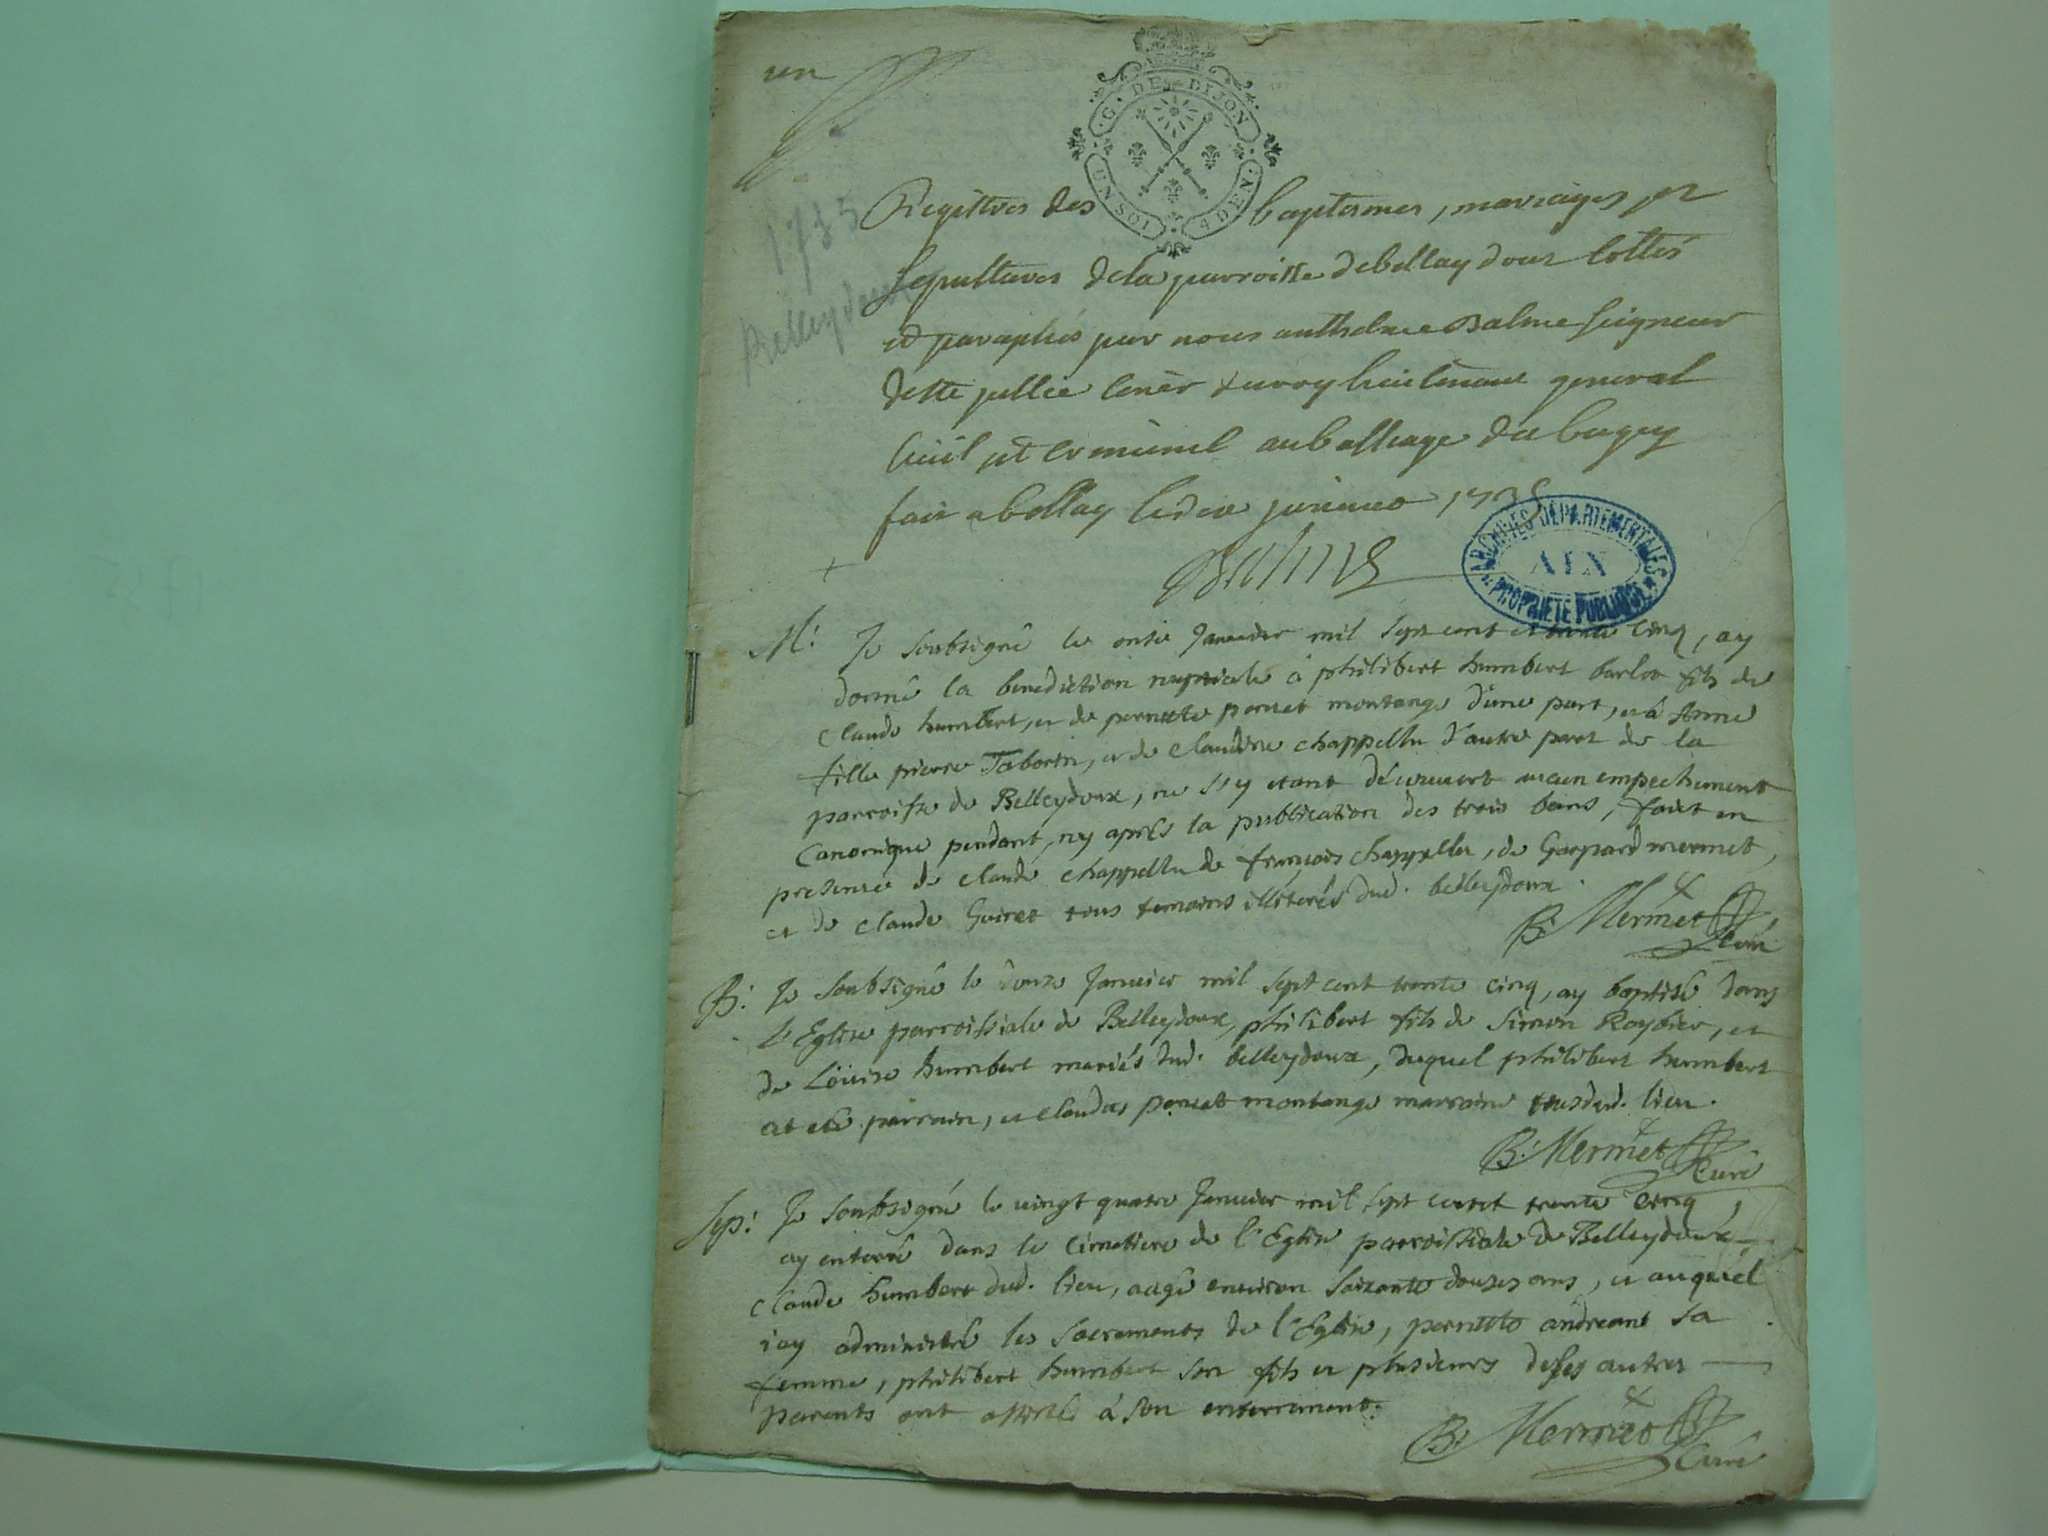 un
G. DE DIJON
UN SOL 4 DEN.
1735
Belleydoux
Registres des baptesmes, mariages et
sepultures de la parroisse de bellaydoux cottés
et paraphés par nous anthelme Balme seigneur
lieutenant general
civil et criminel au balliage du bugey
fait a bellay le dix janvier 1735
Balme
ARCHIVES DEPARTEMENTALES
AIN
PROPRIETE PUBLIQUE
M: Je soubsigné le onze Janvier mil sept cent et trente cinq, ay
donné la benediction nuptiale à philibert humbert barlon fils de
claude humbert, et de pernette poncet montange d'une part, et à Anne
fille pierre Taborin, et de claudine chappellu d'autre part de la
parroisse de Belleydoux, ne s'y etant découvert aucun empechement
Canonique pendant, ny aprés la publication des trois bans, fait en
presence de claude chappellu de françois chappellu, de Gaspard mermet,
et de claude Goiret tous temoins illiterés dud. belleydoux.
B: Mermet Curé
B: Je soubsigné le douze Janvier mil sept cent trente cinq, ay baptisé dans
l'Eglise parroissiale de Belleydoux, philibert fils de Simon Roybier, et
de Louise humbert mariés dud. belleydoux, duquel philibert humbert
at eté parrain, et claudas poncet montange marraine tous dud. lieu.
B: Mermet Curé
Sep: Je soubsigné le vingt quatre Janvier mil sept cent trente cinq,
ay enterré dans le cimetiere de l'Eglise parroissiale de Belleydoux,
claude humbert dud. lieu, aagé environ soixante douzes ans, et auquel
i'ay administré les Sacrements de l'Eglise, pernette andreane sa
femme, philibert humbert son fils et plusieurs de ses autres
parents ont assisté à son enterrement.
B: Mermet Curé